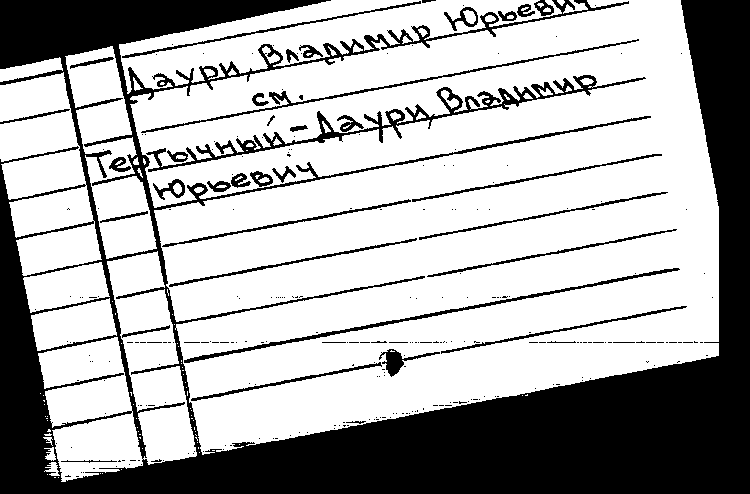 Даури, Владимир Юрьевич
см.
Тертычный-Даури, Владимир
Юрьевич